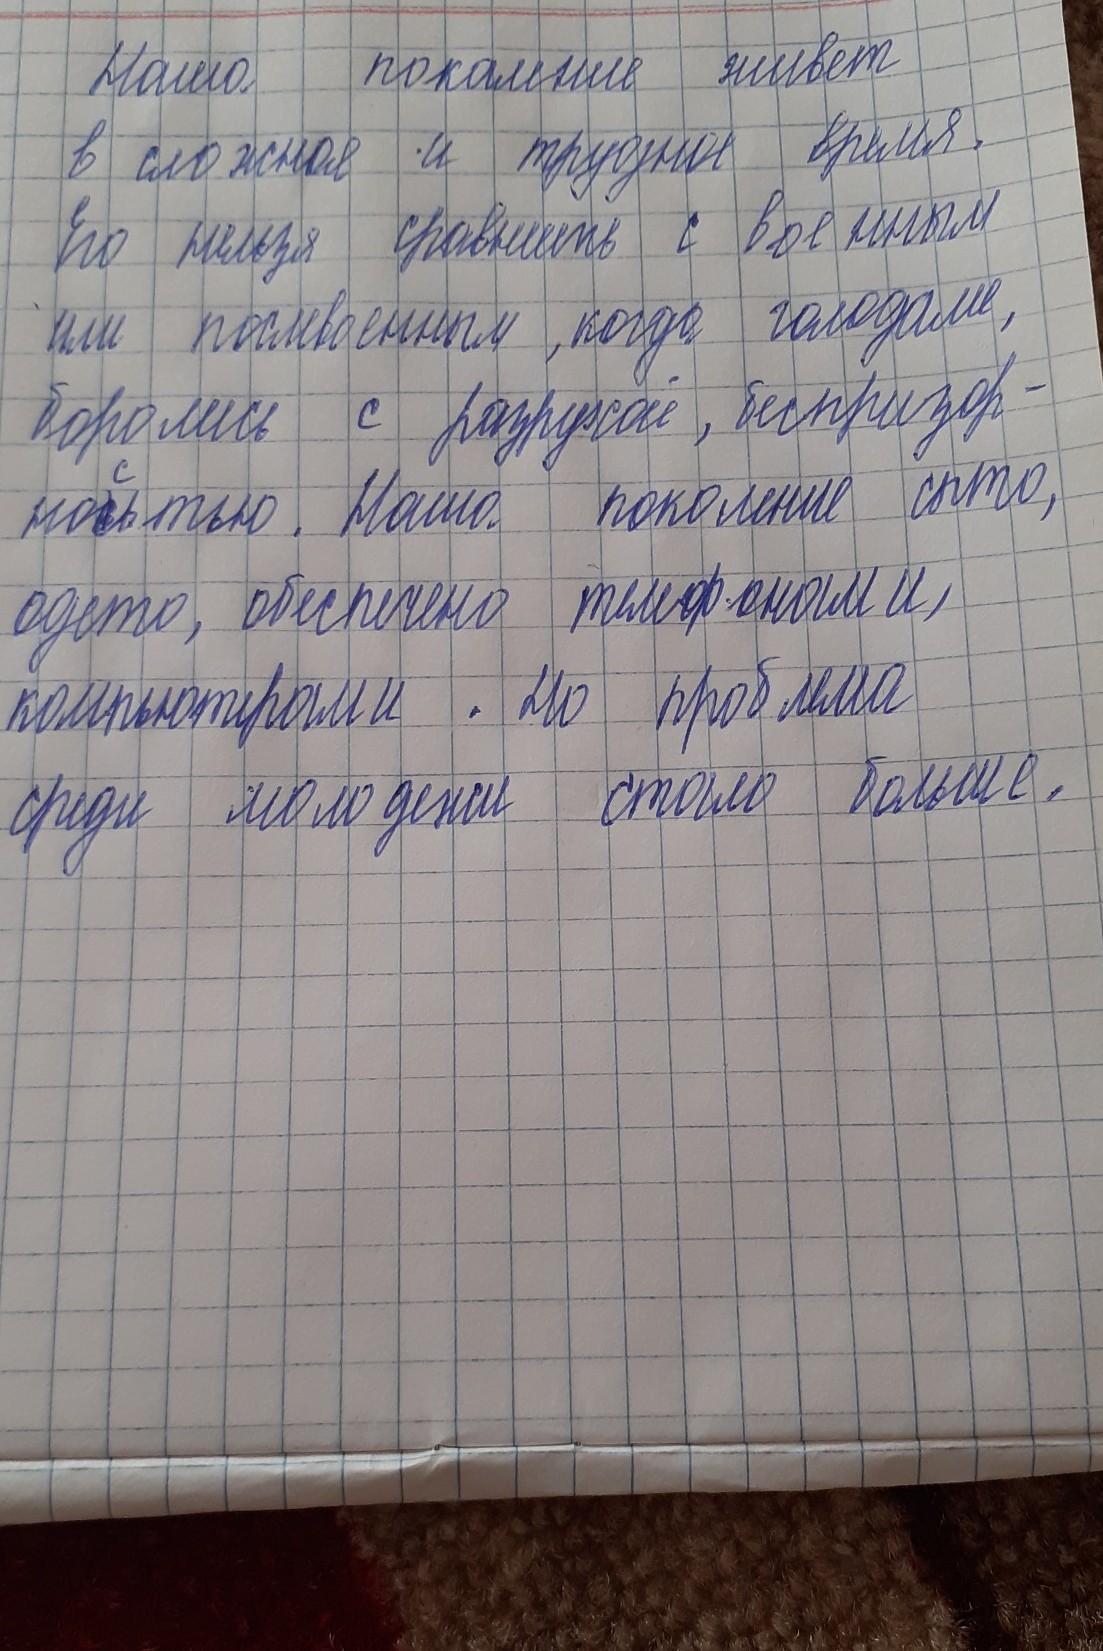 Нашо поколение живет
в сложное и трудное время.
Его нельзя сравнить с военным
или послевоенным, когда голодали,
боролись с разрухой, беспризор-
ностью. Нашо поколение сыто,
одето, обеспечено телефонами,
компьютерами. Но проблема
среди молодежи стало больше.